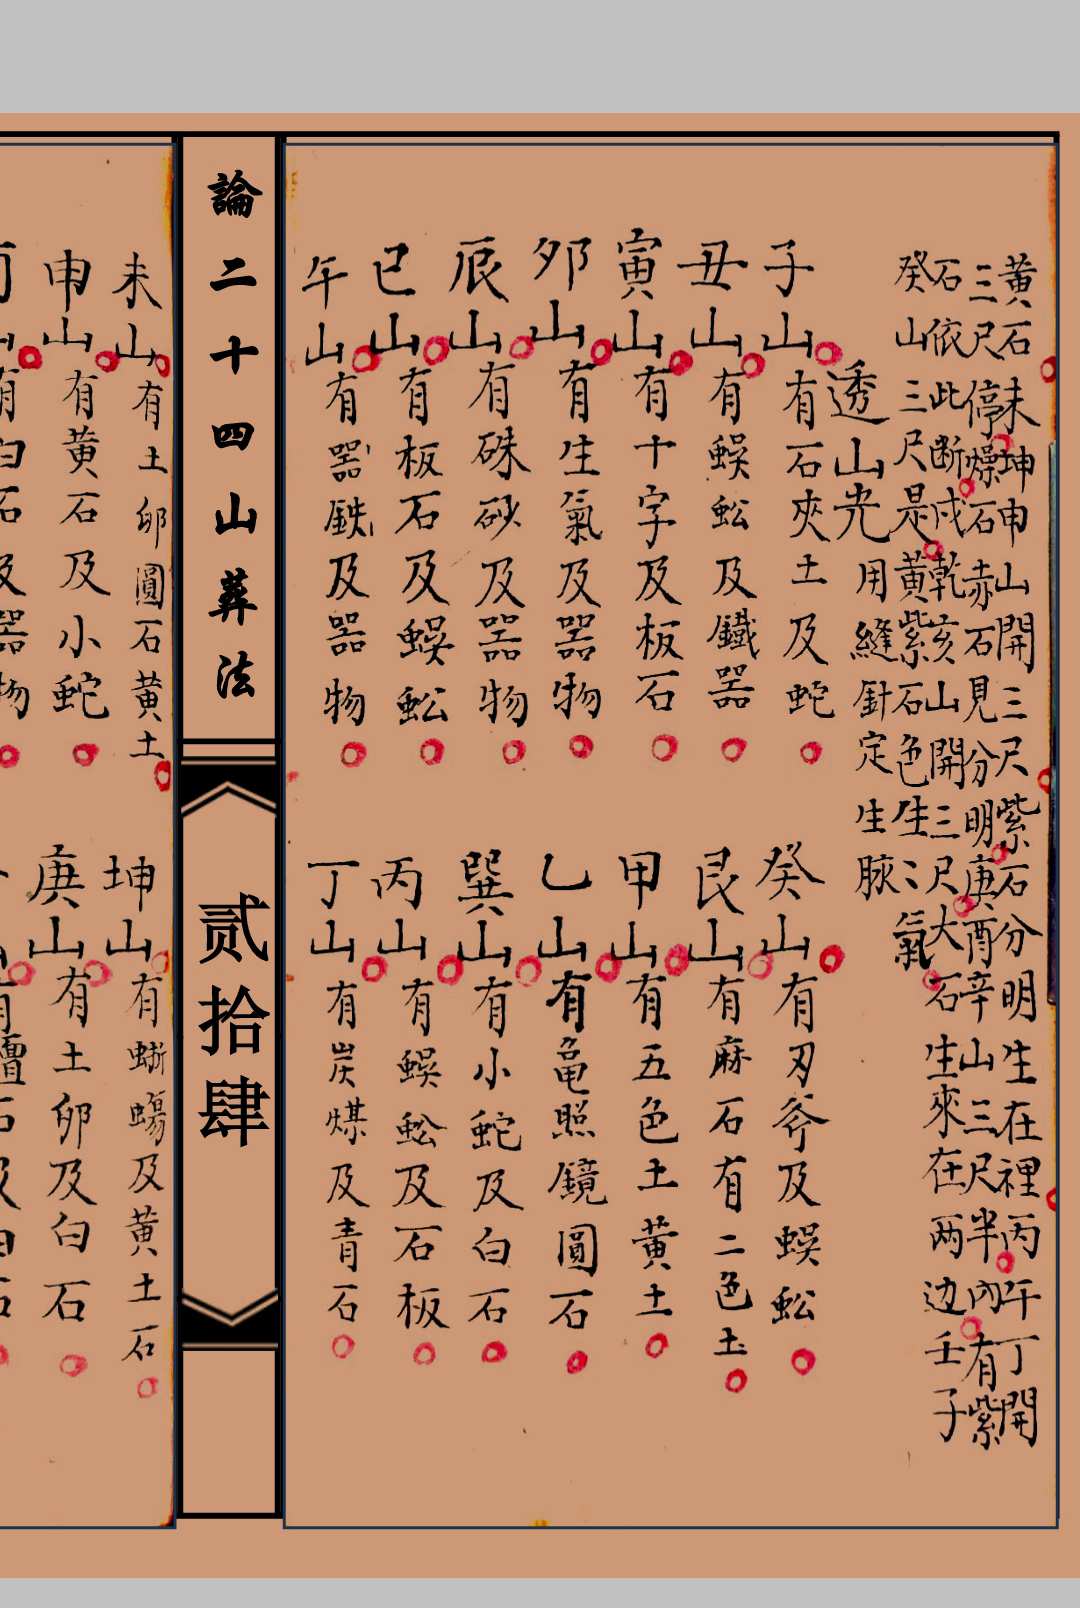 黃石未坤申山開三尺紫石分明生在裡丙午丁開
三尺停燥石赤石見分明庚酉辛山三尺半內有紫
石依此断戌乾亥山開三尺大石生來在两边壬子
癸山三尺是黃紫石色生〻氣
透山光用縫針定生脉
子山有石夾土及蛇
癸山有刃斧及蜈蚣
丑山有蜈蚣及鐵器
艮山有麻石有二色土
寅山有十字及板石
甲山有五色土黃土
夘山有生氣及器物
乙山有龟照鏡圓石
辰山有硃砂及器物
巽山有小蛇及白石
巳山有板石及蜈蚣
丙山有蜈蚣及石板
午山有器鉄及器物
丁山有炭煤及青石
論二十四山葬法
贰拾肆
未山有土卵圓石黃土
坤山有蜥蝪及黃土石
申山有黃石及小蛇
庚山有土卵及白石